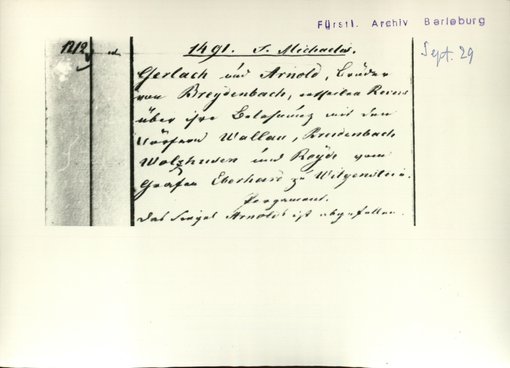 Fürstl. Archiv Berleburg
Sept. 29
1212
1491. S. Michaelis.
Gerlach und Arnold, Brüder
von Breydenbach, ertheilen Revers
über ihre Belehnung mit den
Dörfern Wallau, Breidenbach
Wolzhusen und Royde vom
Grafen Eberhard zu Witgenstein.
Pergament.
Das Siegel Arnolds ist abgefallen.